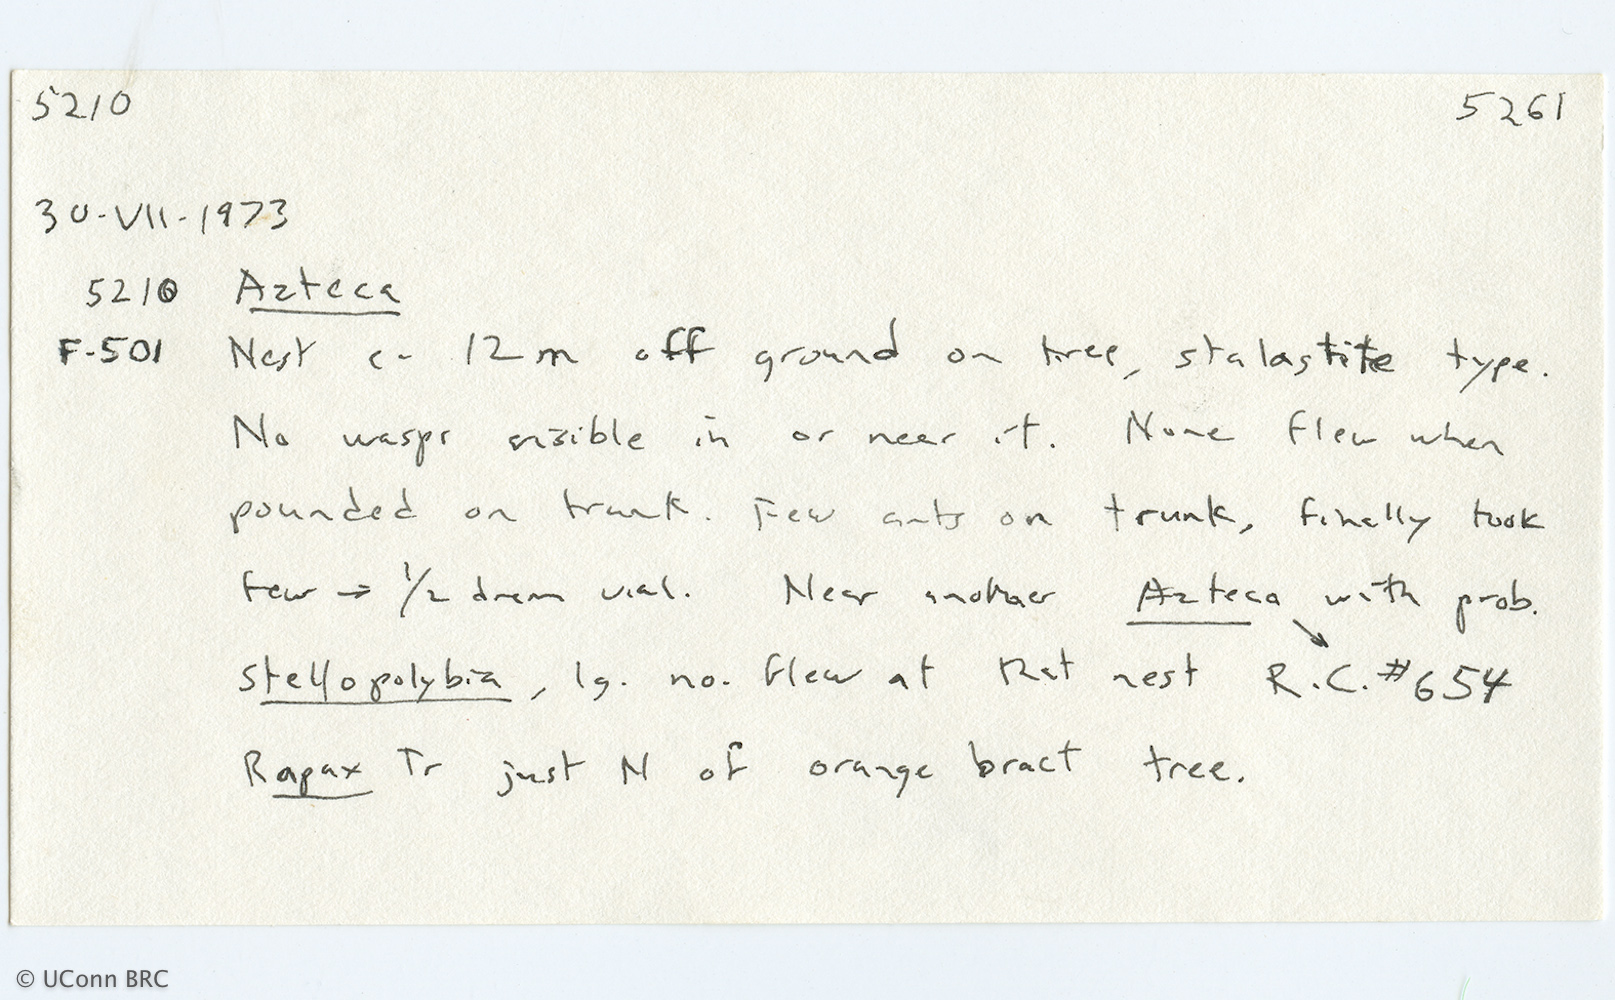 5210 5261
30-VII-1973
5210 Azteca
F-501 Nest c- 12 m off ground on tree, stalastite type.
No wasps visible in or near it. None flew when
pounded on trunk. Few ants on trunk, finally took
few → 1/2 dram vial. Near another Azteca with prob.
stellopolybia, lg. no. flew at that nest ↘ R.C. #654
Rapax Tr just N of orange bract tree.
© UConn BRC